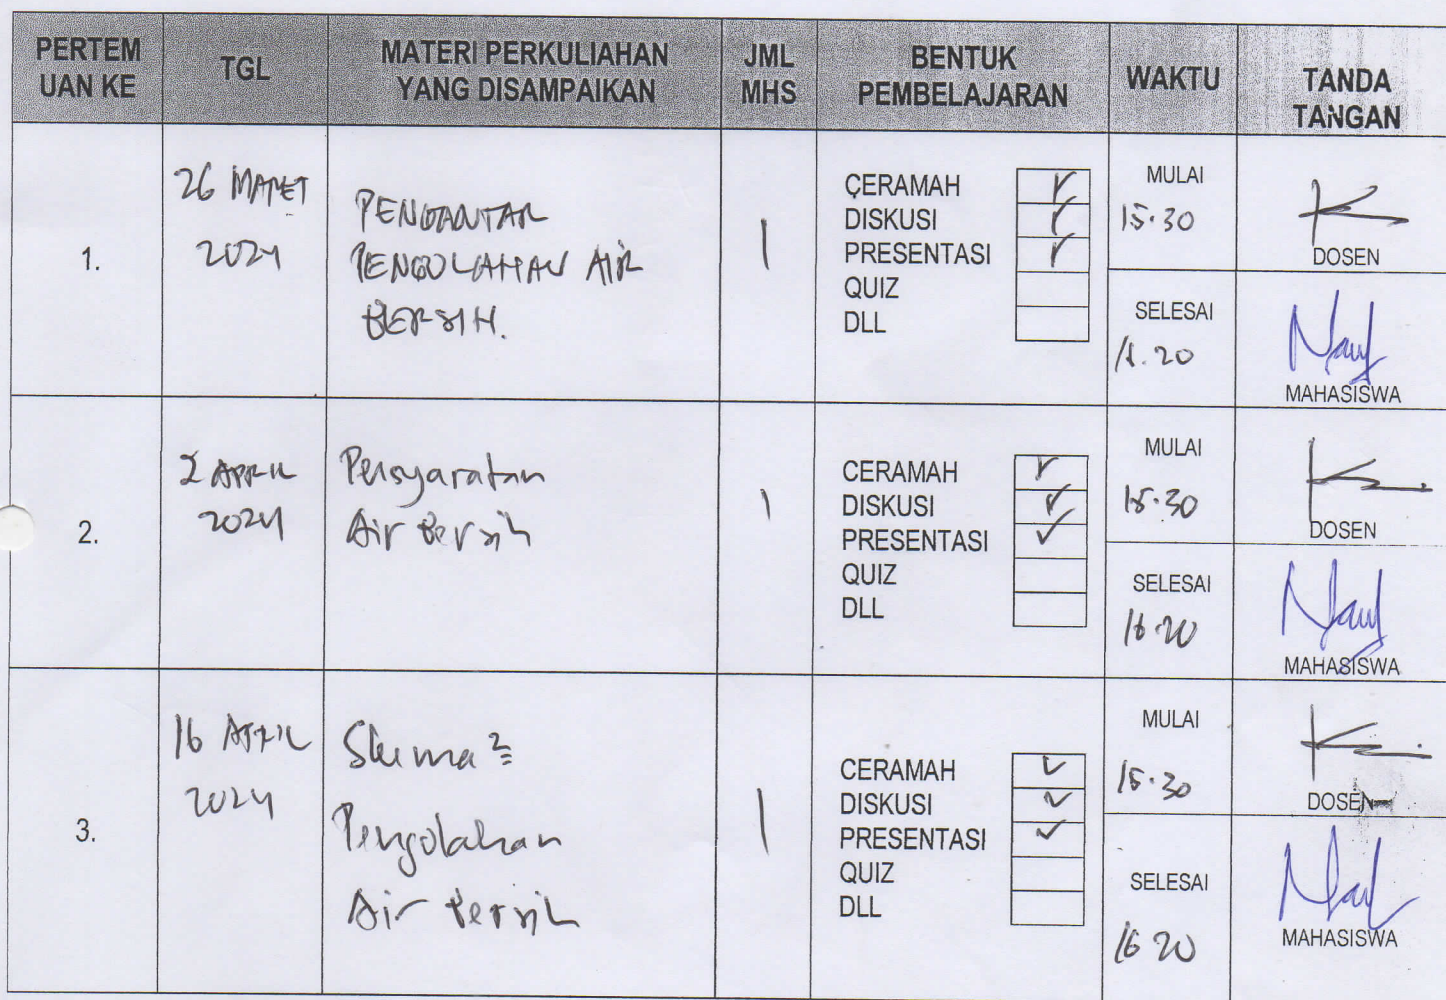 PERTEM
UAN KE
TGL
MATERI PERKULIAHAN
YANG DISAMPAIKAN
JML
MHS
BENTUK
PEMBELAJARAN
WAKTU
TANDA
TANGAN
1.
26 MARET
2024
PENGANTAR
PENGOLAHAN AIR
BERSIH.
1
CERAMAH
DISKUSI
PRESENTASI
QUIZ
DLL
MULAI
15.30
SELESAI
DOSEN
MAHASISWA
2.
2 APRIL
2024
Persyaratan
Air Bersih
1
CERAMAH
DISKUSI
PRESENTASI
QUIZ
DLL
MULAI
15.30
SELESAI
16.20
DOSEN
MAHASISWA
3.
16 APRIL
2024
Skema²
Pengolahan
Air Bersih
1
CERAMAH
DISKUSI
PRESENTASI
QUIZ
DLL
MULAI
15.30
SELESAI
16 20
DOSEN
MAHASISWA